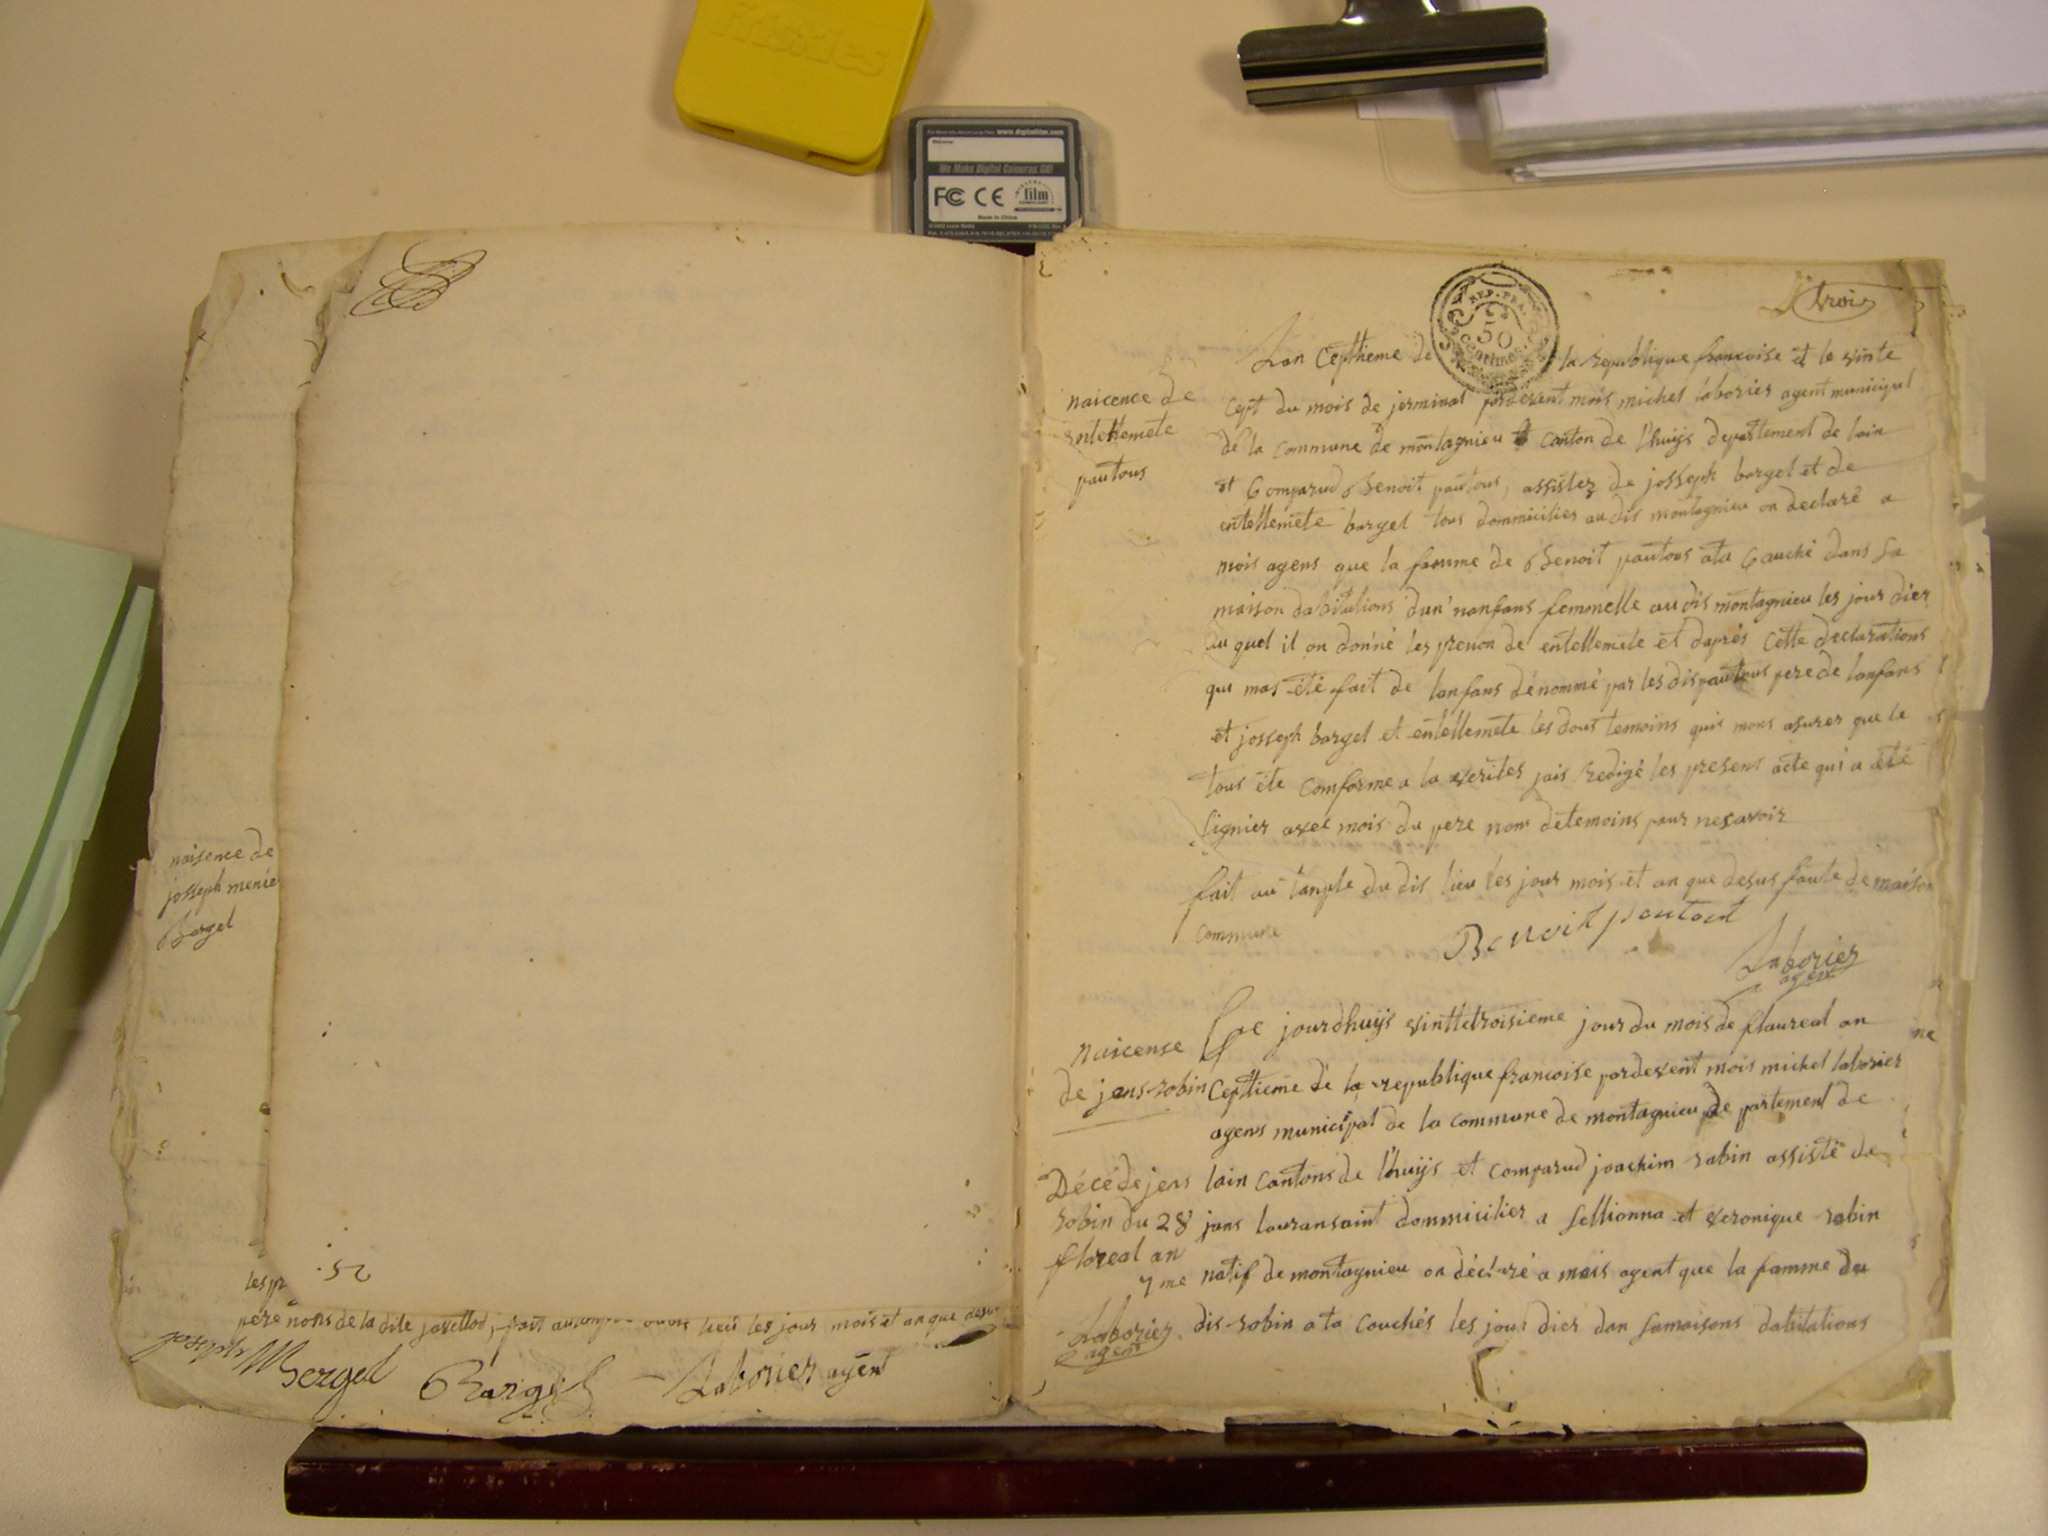 Friskies
www.digitalfilm.com
We Make Digital Cameras GO!
FC CE
film
Made in China
naisence de
josseph menie
Bargel
les pr
52.
pere nons de la dite javellod, fait lieu les jour mois et an que desus
joseph Bergel
Bargel
Laborier agen
trois
REP. FRA.
50
centimes
naicence de
entellemete
pautous
Lan Ceptieme de la republique francoise et le vinte
cept du mois de jerminal pardevent mois michel laborier agent municipal
de la commune de montagnieu canton de l'huijs departement de lain
et Comparud Benoit pautous, assistez de josseph bargel et de
entellemete bargel tous dommicilies au dis montagnieu on declaré a
mois agens que la famme de Benoit pautous ata Cauché dans sa
maison dabitations dun' nanfans femmelle au dis montagnieu les jour dier
au quel il on donné les prenon de entellemete et daprés Cette declarations
qui mas été fait de lanfans dénommé par les dis pautous pere de lanfans
et josseph bargel et entellemete les dous temoins quis mons asurer que le
tous ete comforme a la verites jais redigé les presens acte qui a été
signier avec mois du pere non detemoins pour nesavoir
fait au tanple du dis lieu les jour mois et an que desus faute de maison
commune
Benoit pautout
Laborier
agen
naicense
de jens robin
Ce jourdhuijs vinttetroisieme jour du mois de flaureal an
Ceptieme de la republique francoise pardevent mois michel laborier
agens municipal de la commune de montagnieu de partement de
lain cantons de l'huijs et comparud joachim robin assisté de
jans louransaint dommicilier a sellionna et veronique robin
natif de montagnieu on déclaré a mais agent que la famme du
dis robin ata couchés les jour dier dan samaisons dabitations
Décé de jens
robin du 28
floreal an
7me
Laborier
agent
ne